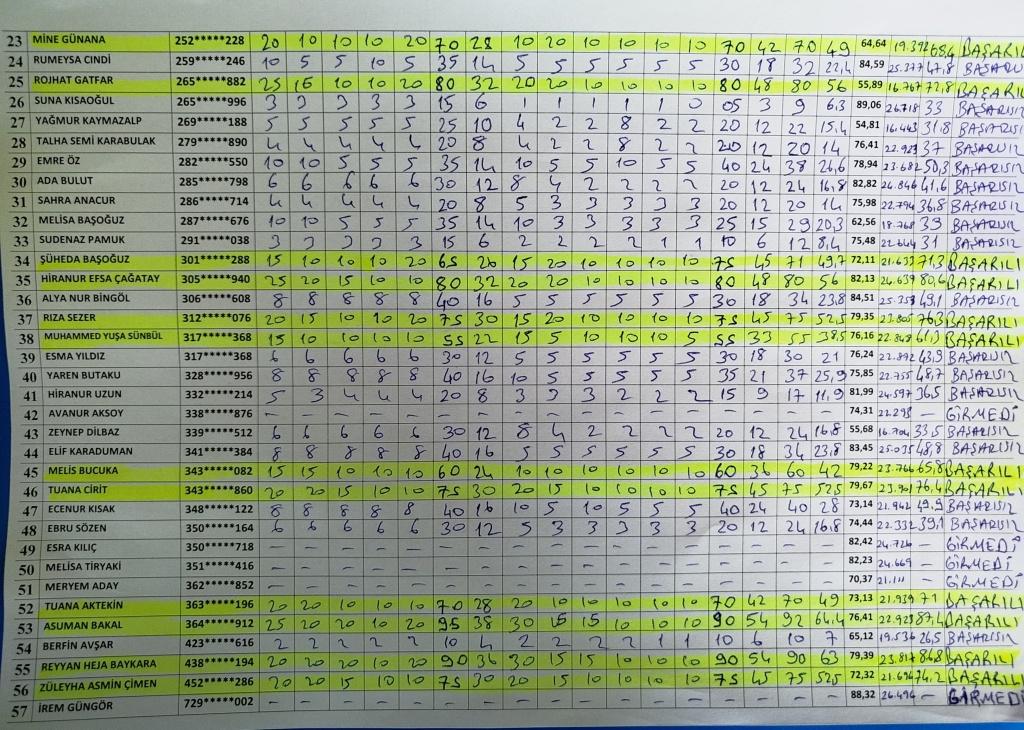 23 MİNE GÜNANA 252*****228 20 10 10 10 20 70 28 10 20 10 10 10 10 70 42 70 49 64,64 19.392 68,4 BAŞARILI
24 RUMEYSA CINDİ 259*****246 10 5 5 10 5 35 14 5 5 5 5 5 5 30 18 32 22,4 84,59 25.377 47,8 BAŞARISIZ
25 ROJHAT GATFAR 265*****882 25 15 10 10 20 80 32 20 20 10 10 10 10 80 48 80 56 55,89 16.767 72,8 BAŞARILI
26 SUNA KISAOĞUL 265*****996 3 3 3 3 3 15 6 1 1 1 1 1 0 05 3 9 6,3 89,06 26.718 33 BAŞARISIZ
27 YAĞMUR KAYMAZALP 269*****188 5 5 5 5 5 25 10 4 2 2 8 2 2 20 12 22 15,4 54,81 16.443 31,8 BAŞARISIZ
28 TALHA SEMİ KARABULAK 279*****890 4 4 4 4 4 20 8 4 2 2 8 2 2 20 12 20 14 76,41 22.923 37 BAŞARISIZ
29 EMRE ÖZ 282*****550 10 10 5 5 5 35 14 10 5 5 10 5 5 40 24 38 26,6 78,94 23.682 50,3 BAŞARISIZ
30 ADA BULUT 285*****798 6 6 6 6 6 30 12 8 4 2 2 2 2 20 12 24 16,8 82,82 24.846 41,6 BAŞARISIZ
31 SAHRA ANACUR 286*****714 4 4 4 4 4 20 8 5 3 3 3 3 3 20 12 20 14 75,98 22.794 36,8 BAŞARISIZ
32 MELİSA BAŞOĞUZ 287*****676 10 10 5 5 5 35 14 10 3 3 3 3 3 25 15 29 20,3 62,56 18.768 39 BAŞARISIZ
33 SUDENAZ PAMUK 291*****038 3 3 3 3 3 15 6 2 2 2 2 1 1 10 6 12 8,4 75,48 22.644 31 BAŞARISIZ
34 ŞÜHEDA BAŞOĞUZ 301*****288 15 10 10 10 20 65 26 15 20 10 10 10 10 75 45 71 49,7 72,11 21.633 71,3 BAŞARILI
35 HİRANUR EFSA ÇAĞATAY 305*****940 25 20 15 10 10 80 32 20 20 10 10 10 10 80 48 80 56 82,13 24.639 80,6 BAŞARILI
36 ALYA NUR BİNGÖL 306*****608 8 8 8 8 8 40 16 5 5 5 5 5 5 30 18 34 23,8 84,51 25.353 49,1 BAŞARISIZ
37 RIZA SEZER 312*****076 20 15 10 10 20 75 30 15 20 10 10 10 10 75 45 75 52,5 79,35 23.805 76,3 BAŞARILI
38 MUHAMMED YUŞA SÜNBÜL 317*****368 15 10 10 10 10 55 22 15 5 10 10 10 5 55 33 55 38,5 76,16 22.848 61,3 BAŞARILI
39 ESMA YILDIZ 317*****368 6 6 6 6 6 30 12 5 5 5 5 5 5 30 18 30 21 76,24 22.872 43,9 BAŞARISIZ
40 YAREN BUTAKU 328*****956 8 8 8 8 8 40 16 10 5 5 5 5 5 35 21 37 25,9 75,85 22.755 48,7 BAŞARISIZ
41 HİRANUR UZUN 332*****214 5 3 4 4 4 20 8 3 3 3 2 2 2 15 9 17 11,9 81,99 24.597 36,5 BAŞARISIZ
42 AVANUR AKSOY 338*****876 – – – – – – – – – – – – – – – – – 74,31 22.293 – GİRMEDİ
43 ZEYNEP DİLBAZ 339*****512 6 6 6 6 6 30 12 8 4 2 2 2 2 20 12 24 16,8 55,68 16.704 33,5 BAŞARISIZ
44 ELİF KARADUMAN 341*****384 8 8 8 8 8 40 16 5 5 5 5 5 5 30 18 34 23,8 83,45 25.035 48,8 BAŞARISIZ
45 MELİS BUCUKA 343*****082 15 15 10 10 10 60 24 10 10 10 10 10 10 60 36 60 42 79,22 23.766 65,8 BAŞARILI
46 TUANA CİRİT 343*****860 20 20 15 10 10 75 30 20 15 10 10 10 10 75 45 75 52,5 79,67 23.901 76,4 BAŞARILI
47 ECENUR KISAK 348*****122 8 8 8 8 8 40 16 10 5 10 5 5 5 40 24 40 28 73,14 21.942 49,9 BAŞARISIZ
48 EBRU SÖZEN 350*****164 6 6 6 6 6 30 12 5 3 3 3 3 3 20 12 24 16,8 74,44 22.332 39,1 BAŞARISIZ
49 ESRA KILIÇ 350*****718 – – – – – – – – – – – – – – – – – 82,42 24.726 – GİRMEDİ
50 MELİSA TİRYAKİ 351*****416 – – – – – – – – – – – – – – – – – 82,23 24.669 – GİRMEDİ
51 MERYEM ADAY 362*****852 – – – – – – – – – – – – – – – – – 70,37 21.111 – GİRMEDİ
52 TUANA AKTEKİN 363*****196 20 20 10 10 10 70 28 20 10 10 10 10 10 70 42 70 49 73,13 21.939 71 BAŞARILI
53 ASUMAN BAKAL 364*****912 25 20 20 10 20 95 38 30 15 15 10 10 10 90 54 92 64,4 76,41 22.923 87,4 BAŞARILI
54 BERFİN AVŞAR 423*****616 2 2 2 2 2 10 4 2 2 2 2 1 1 10 6 10 7 65,12 19.536 26,5 BAŞARISIZ
55 REYYAN HEJA BAYKARA 438*****194 20 20 20 10 20 90 36 30 15 15 10 10 10 90 54 90 63 79,39 23.817 86,8 BAŞARILI
56 ZÜLEYHA ASMİN ÇİMEN 452*****286 20 20 15 10 10 75 30 20 15 10 10 10 10 75 45 75 52,5 72,32 21.696 74,2 BAŞARILI
57 İREM GÜNGÖR 729*****002 – – – – – – – – – – – – – – – – – 88,32 26.496 – GİRMEDİ